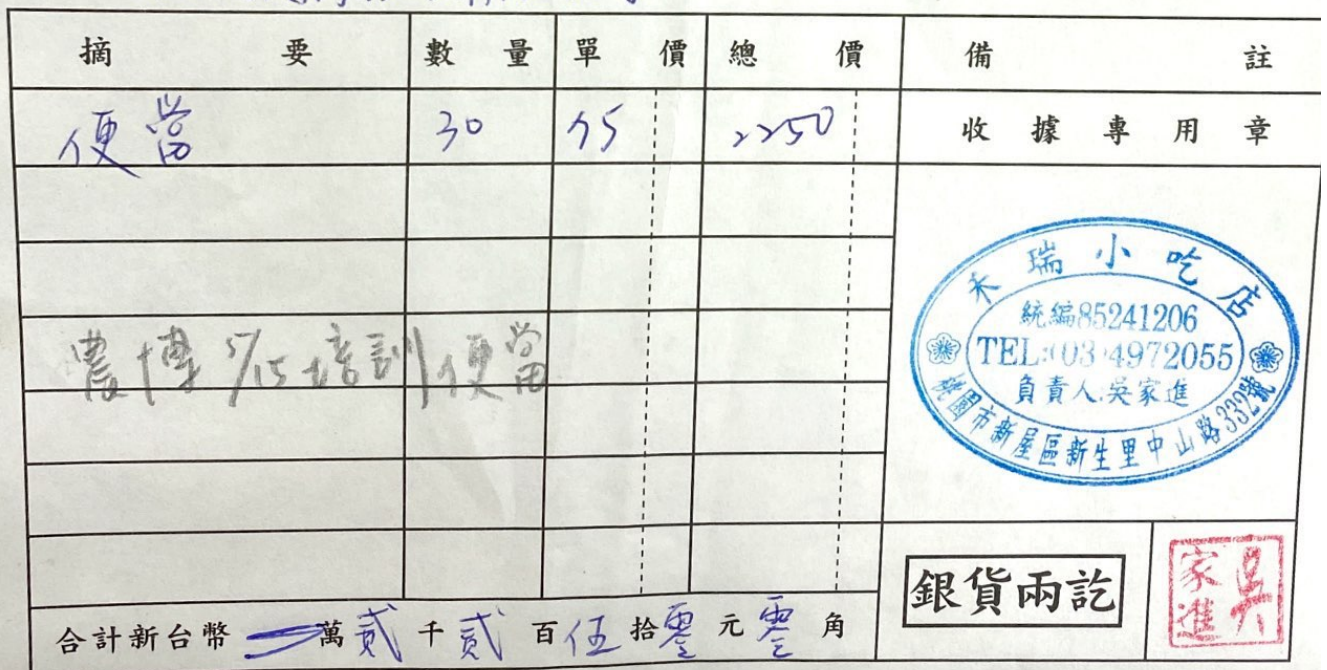 摘要 數量 單價 總價 備註
便當 30 75 2250 收據專用章
禾瑞小吃店
統編85241206
TEL:(03)4972055
負責人:吳家進
桃園市新屋區新生里中山路332號
農博 5/15培訓便當
銀貨兩訖
吳家進
合計新台幣 萬貳千貳百伍拾零元零角